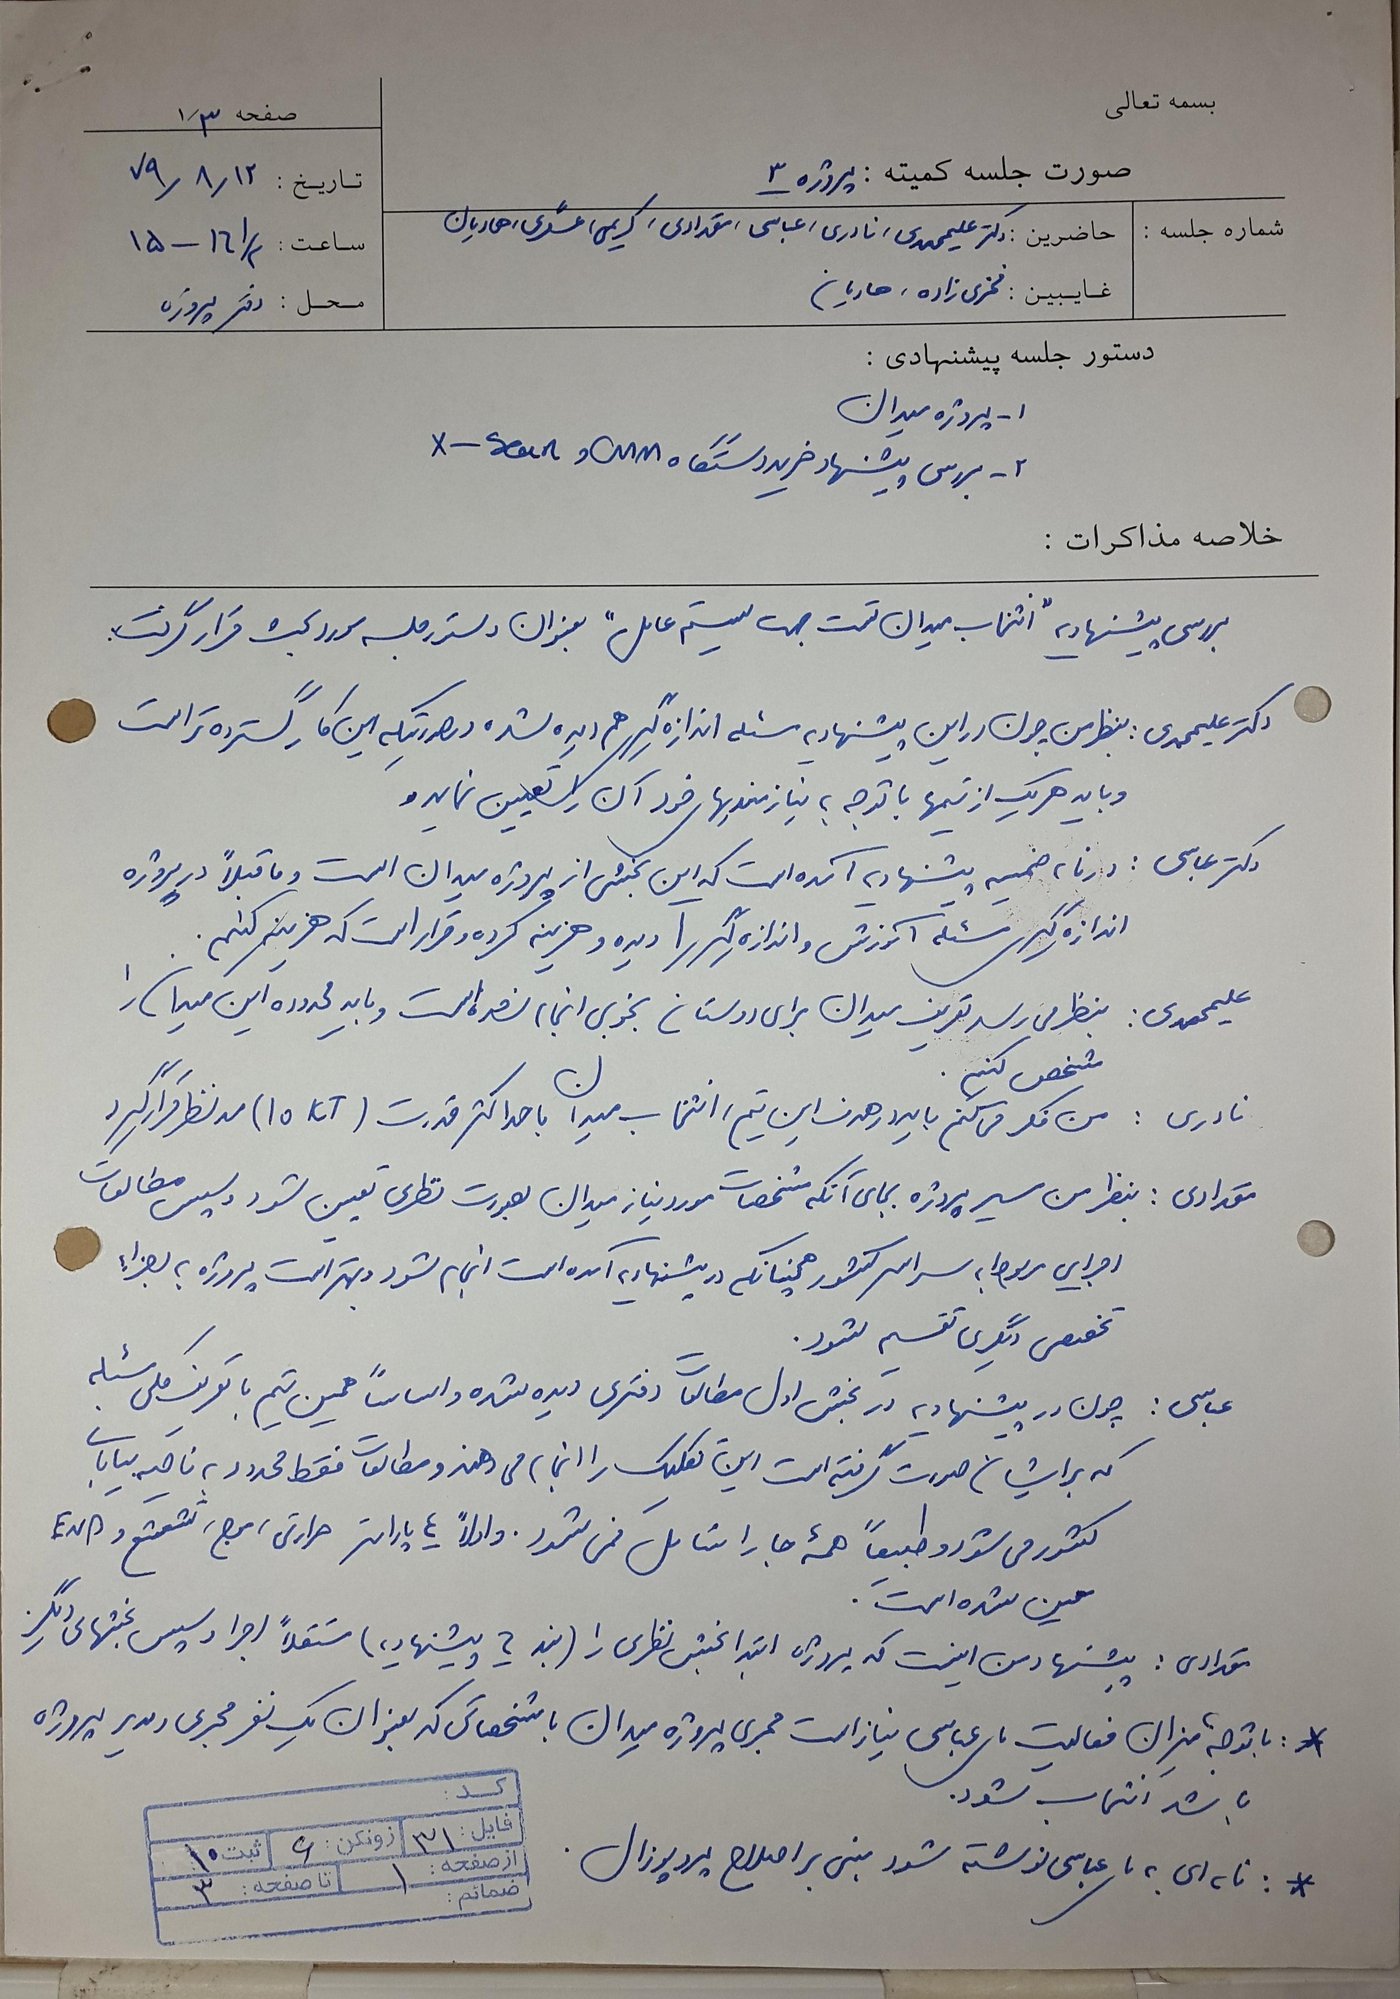 بسمه تعالی
صفحه ۱/۳
صورت جلسه کمیته : پروژه ۳
تاریخ : ۷۹/۸/۱۲
شماره جلسه :
حاضرین : دکتر علیمحمدی، نادری، عباسی، مقدادی، کریمی، عسگری، هادیان
ساعت : ۱۵ –
غایبین : فخری زاده، هادیان
محل : دفتر پروژه
دستور جلسه پیشنهادی :
۱- پروژه میدان
۲- بررسی پیشنهاد خرید دستگاه CMM و X-Scan
خلاصه مذاکرات :
بررسی پیشنهادیه "انتخاب میدان تست جهت سیستم عامل" بعنوان دستور جلسه مورد بحث قرار گرفت.
دکتر علیمحمدی : بنظر من چون در این پیشنهادیه مسئله اندازه گیری هم دیده شده در صورتیکه این کار گسترده تر است
و باید هر یک از تیمها با توجه به نیازمندیهای خود آن را تعیین نماید
دکتر عباسی : در نامه ضمیمه پیشنهادیه آمده است که این بخشی از پروژه میدان است و ما قبلاً در پروژه
اندازه گیری مسئله آموزش و اندازه گیری را دیده و هزینه کرده و قرار است که هزینه کنیم .
علیمحمدی : بنظر می رسد تعریف میدان برای دوستان بخوبی انجام نشده است و باید محدوده این میدان را
مشخص کنیم .
نادری : من فکر می کنم باید در هدف این تیم، انتخاب میدان با حداکثر قدرت (10 KT) مد نظر قرار گیرد
مقدادی : بنظر من سیر پروژه بجای آنکه مشخصات مورد نیاز میدان بصورت نظری تعیین شود و سپس مطالعات
اجرایی مربوط به سراسر کشور همچنانکه در پیشنهادیه آمده است انجام شود بهتر است پروژه به اجزاء
تخصصی دیگری تقسیم شود .
عباسی : چون در پیشنهادیه در بخش اول مطالعات دفتری دیده شده و اساساً همین تیم با تعریف کلی مسئله
که برایشان صورت گرفته است این تفکیک را انجام می دهند و مطالعات فقط محدود به ناحیه بیابانی
کشور می شود و طبیعتاً همۀ جا را شامل نمی شود . و اولاً ۴ پارامتر حرارتی، موج، تشعشع و EMP
معین شده است .
مقدادی : پیشنهاد من اینست که پروژه ابتدا بخش نظری را (بند ج پیشنهادیه) مستقلاً اجرا و سپس بخشهای دیگر
* : با توجه به میزان فعالیت عباسی نیاز است مجری پروژه میدان با مشخصاتی که بعنوان یک نفر مجری و مدیر پروژه
باشد انتخاب شود .
* : نامه ای به عباسی نوشته شود مبنی بر اصلاح پروپوزال .
کد :
فایل : ۳۱ زونکن : ۶ ثبت : ۱۰
از صفحه : ۱ تا صفحه : ۳
ضمائم :